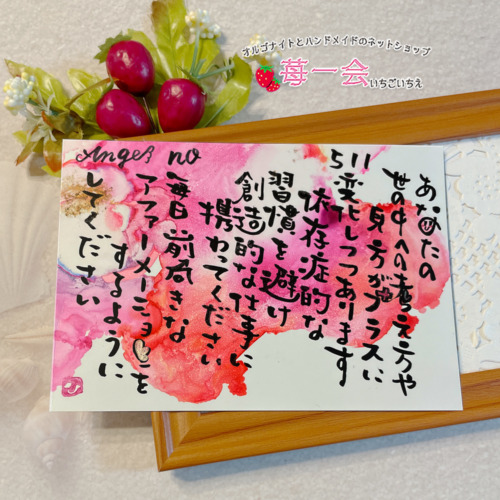 オルゴナイトとハンドメイドのネットショップ
苺一会
いちごいちえ
あなたの
世の中への考え方や
見方がプラスに
変化しつつあります
依存症的な
習慣を避け
創造的な仕事に
携わってください
毎日前向きな
アファーメーションを
するように
してください
Angel no